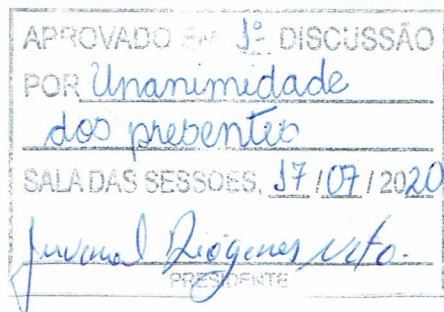 APROVADO EM 1ª DISCUSSÃO
POR Unanimidade
dos presentes
SALA DAS SESSÕES, 17 / 07 / 2020
Juvenal Diógenes Neto.
PRESIDENTE